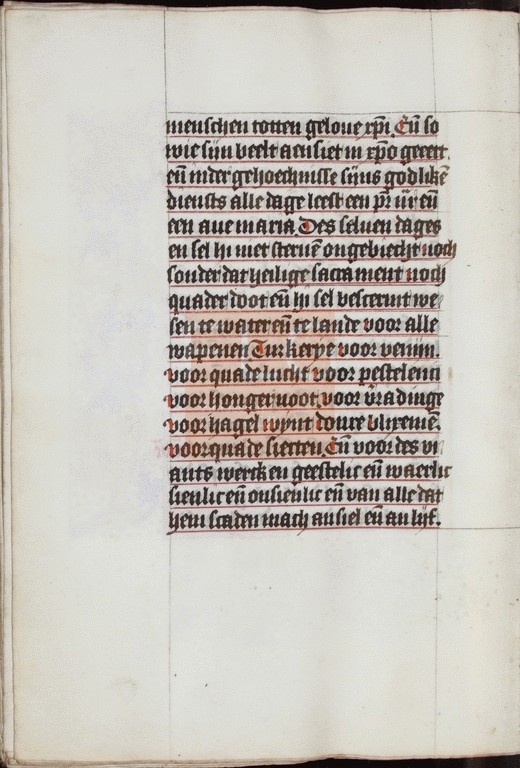 menschen totten geloue xpi. Eñ so
wie sijn beelt aensiet in xpo geeert.
eñ inder gehoechnisse sijns godlikē
diensts alle dage leest een pr̄ nr̄ eñ
een aue maria Des seluen dages
en sel hi niet steruē ongebiecht noch
sonder dat heilige sacrament noch
quader doot eñ hi sel bescermt we
sen te water eñ te lande voor alle
wapenen Turkerye voor venijn.
voor quade lucht voor pestelenci
voor honger noot voor v̄radinge
voor hagel wijnt donre blixemē.
voor quade siecten. Eñ voor des vi
ants wercken geestelic eñ waerlic
sienlic eñ onsienlic eñ van alle dat
hem scaden mach an siel eñ an lijf.